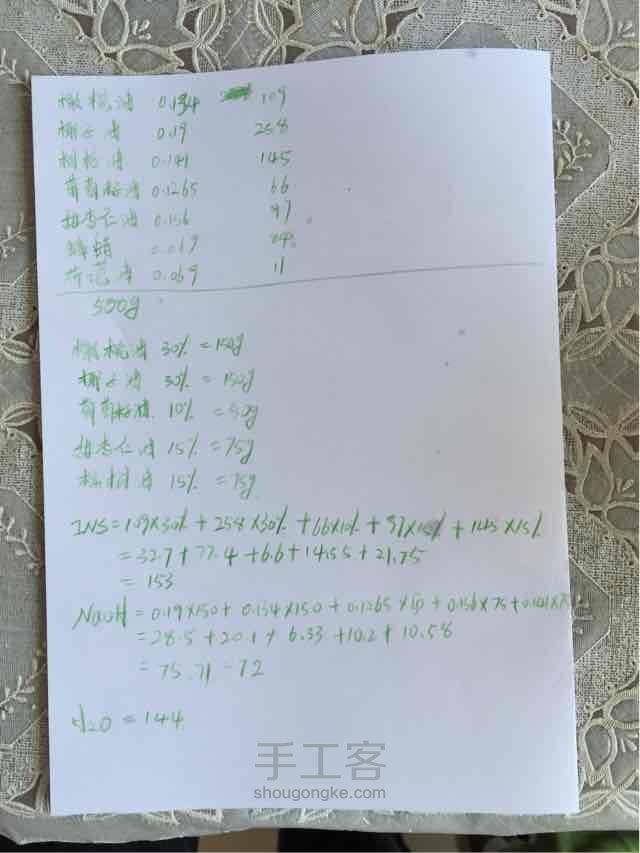 橄榄油 0.134 109
椰子油 0.19 258
棕榈油 0.141 145
葡萄籽油 0.1265 66
甜杏仁油 0.136 97
蜂蜡 0.069
荷荷巴油 0.069 11
500g
橄榄油 30% = 150g
椰子油 30% = 150g
葡萄籽油 10% = 50g
甜杏仁油 15% = 75g
棕榈油 15% = 75g
INS = 109×30% + 258×30% + 66×10% + 97×15% + 145×15%
= 32.7 + 77.4 + 6.6 + 14.55 + 21.75
= 153
NaOH = 0.19×150 + 0.134×150 + 0.1265×50 + 0.136×75 + 0.141×75
= 28.5 + 20.1 + 6.33 + 10.2 + 10.58
= 75.71 - 72
H2O = 144
手工客
shougongke.com